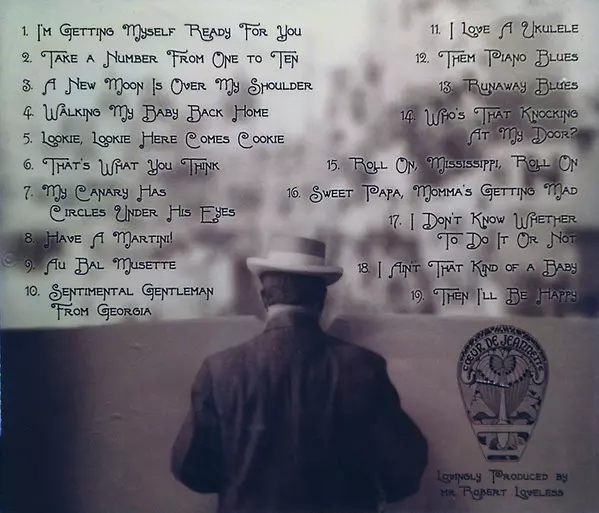 1. I'm Getting Myself Ready For You
2. Take a Number From One to Ten
3. A New Moon Is Over My Shoulder
4. Walking My Baby Back Home
5. Lookie, Lookie Here Comes Cookie
6. That's What You Think
7. My Canary Has
Circles Under His Eyes
8. Have A Martini!
9. Au Bal Musette
10. Sentimental Gentleman
From Georgia
11. I Love A Ukulele
12. Them Piano Blues
13. Runaway Blues
14. Who's That Knocking
At My Door?
15. Roll On, Mississippi, Roll On
16. Sweet Papa, Momma's Getting Mad
17. I Don't Know Whether
To Do It Or Not
18. I Ain't That Kind of a Baby
19. Then I'll Be Happy
CŒUR DE JEANNETTE
Lovingly Produced by
Mr Robert Loveless